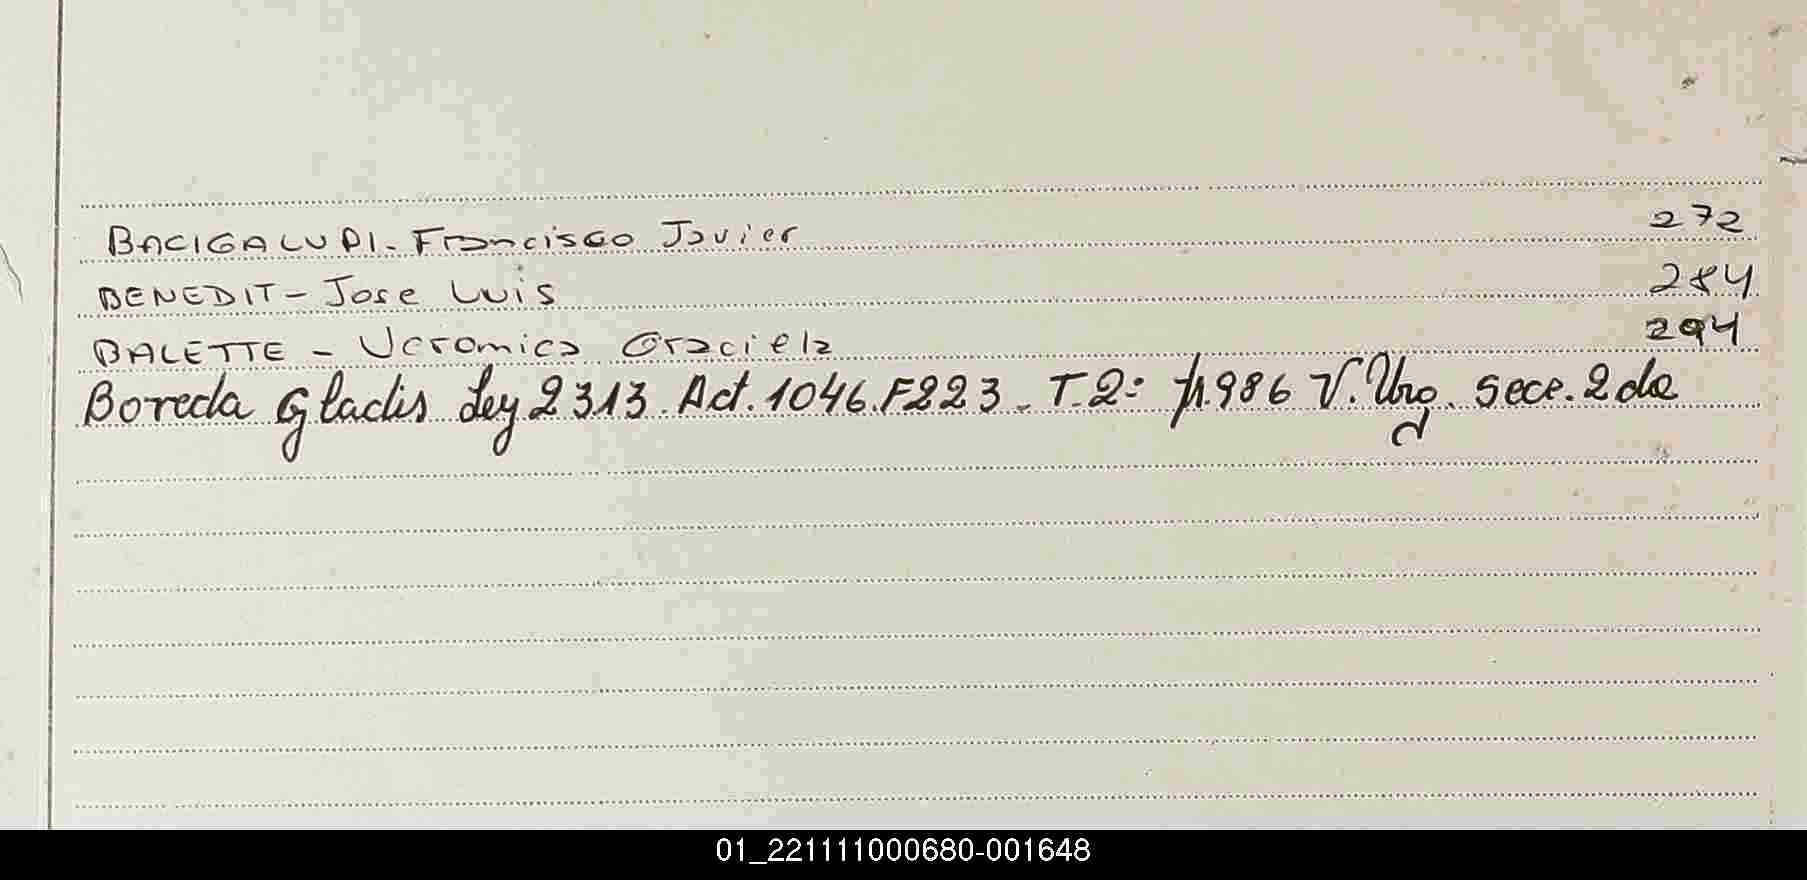 BACIGALUPI - Francisco Javier 272
BENEDIT - Jose Luis 284
BALETTE - Veronica Graciela 294
Boreda Gladis Ley 2313. Act. 1046. F223. T. 2: 1.986 V. Urq. Secc. 2da
01_221111000680-001648